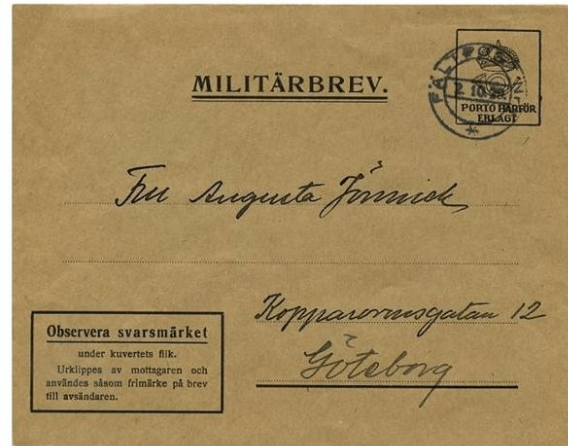 MILITÄRBREV.
FÄLTPOST
2.10.29
PORTO HÄRFÖR
ERLAGT
Fru Augusta Jönnick
Kopparormsgatan 12
Göteborg
Observera svarsmärket
under kuvertets flik.
Urklippes av mottagaren och
användes såsom frimärke på brev
till avsändaren.